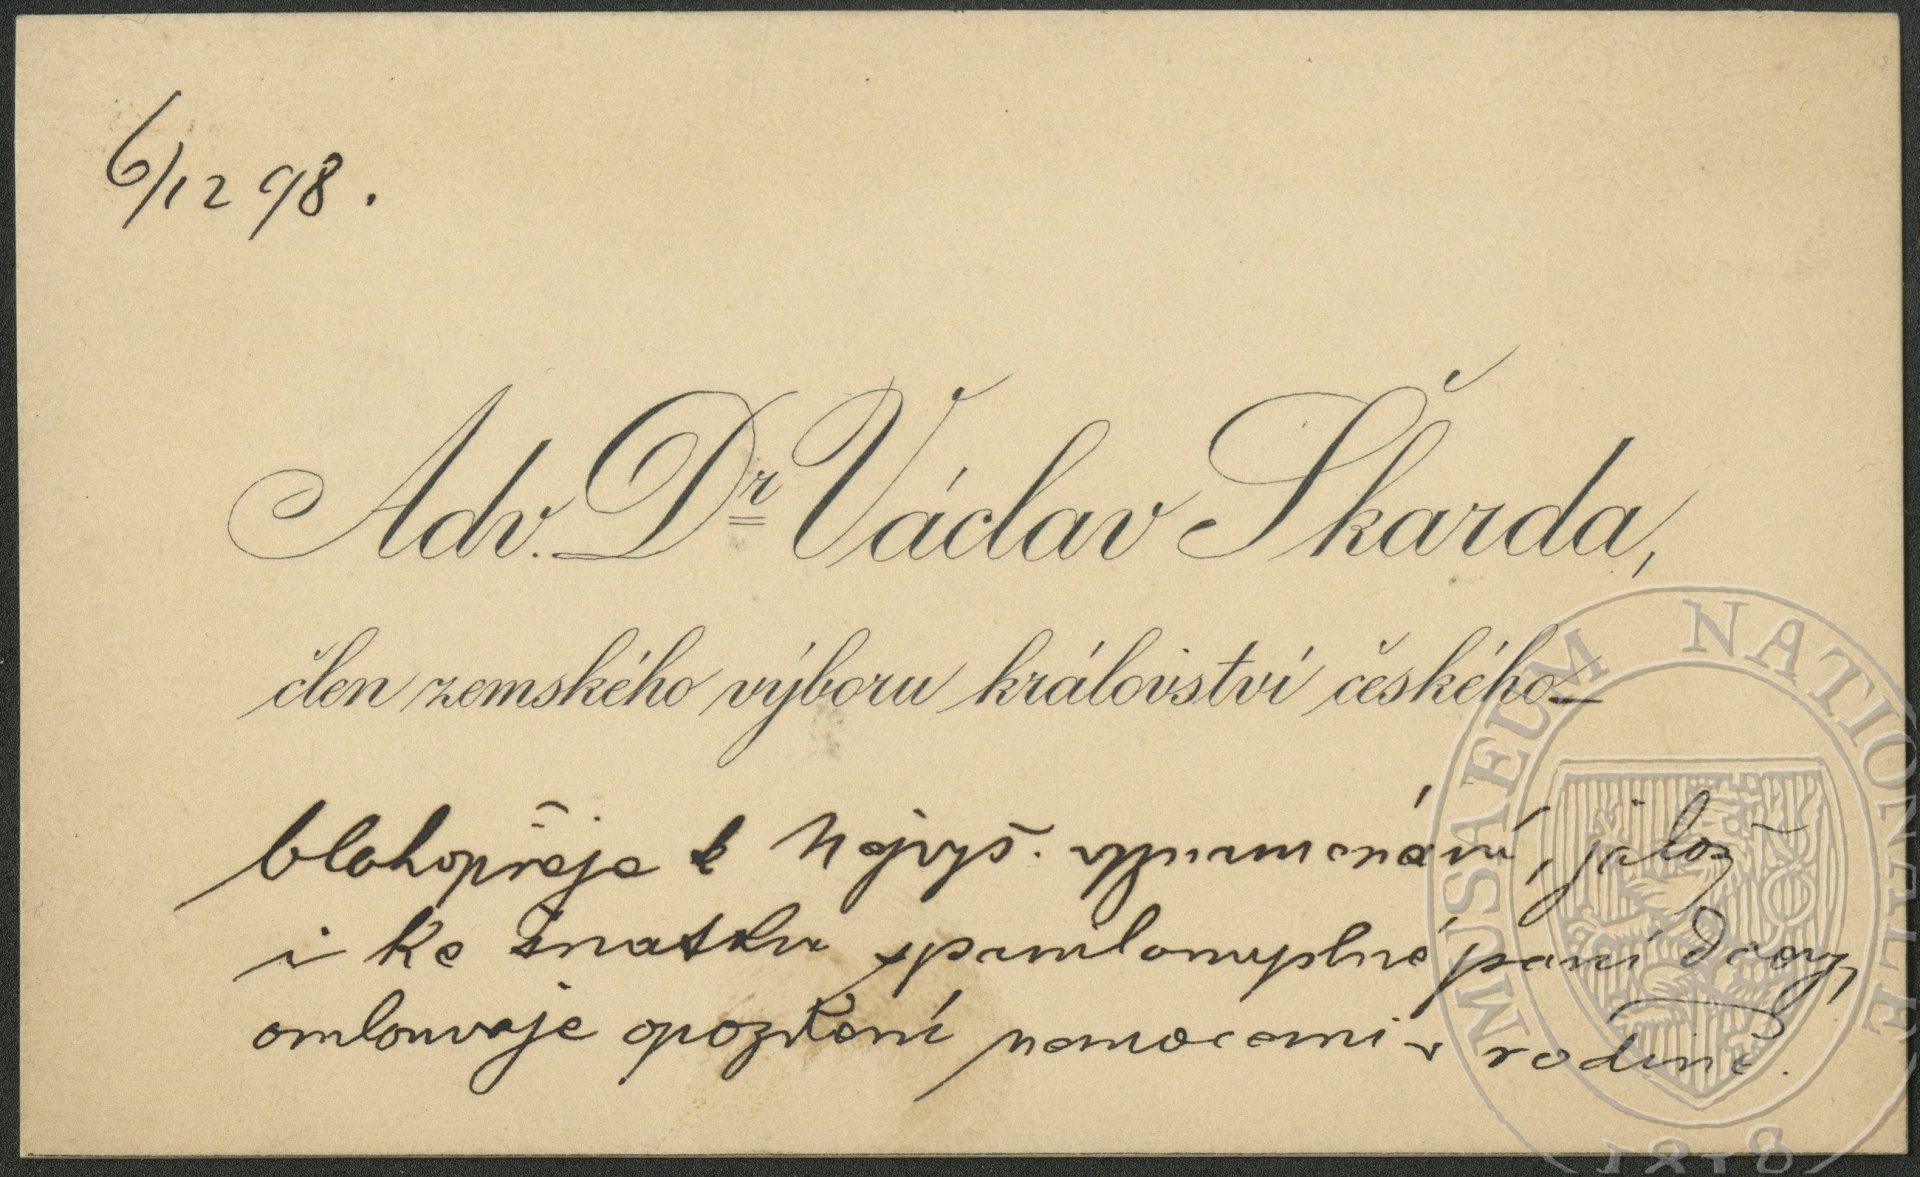 6/12 98.
Adv. Dr. Václav Škarda,
člen zemského výboru království českého
blahopřeje k Nejvyš. vyznamenání, jakož
i ke sňatku spanilomyslné paní dcery,
omlouvaje opozdění nemocemi v rodině.
MUSAEUM NATIONALE
1818